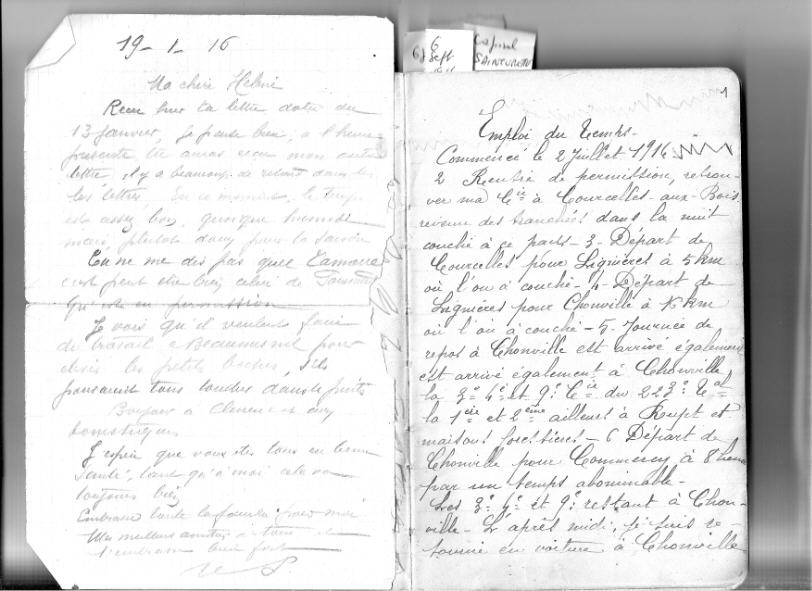 19-1-16
Ma chère
Recu hier ta lettre datée du
13 janvier, je pense bien, a l'heure
présente tu auras recu mon autre
lettre, il y a beaucoup de retard dans
les lettres, En ce moment le temps
est assez bon, quoique humide
mais plutot doux pour la saison
Tu ne me dis pas quel
c'est peut etre celui de
qui est en permission
Je vois qu'il veulent faire
du travail a Beaumesnil pour
les petits boches, s'ils
pouvaient tous tomber dans le puits
Bonjour a Clemence et aux
domestiques
J'espère que vous êtes tous en bonne
santé, tant qu'à moi cela va
toujours bien
Embrasse toute la famille pour moi
Mes meilleurs amitiés a tous et
t'embrasse bien fort
6
Sept
Caporal
1
Emploi du Temps-
Commencé le 2 Juillet 1916
2 Rentré de permission, retrou-
ver ma Cie à Courcelles-aux-Bois
revenu des tranchées dans la nuit
couché à ce pays- 3- Départ de
Courcelles pour Lignières à 5 km
où l'ou à couché- 4- Départ de
Lignières pour Chonville à km
où l'ou à couché- 5- Journée de
repos à Chonville est arrivé également
est arrivé également à Chonville
la 3e 4e et 9e Cie du 223e Tal
la 1ère et 2ème ailleurs à Roupt et
maisons forestières- 6 Départ de
Chonville pour Commercy à 8 heures
par un temps abominable-
Les 3e 4e et 9e restant à Chon-
ville- L'après midi, je suis re-
tourné en voiture à Chonville